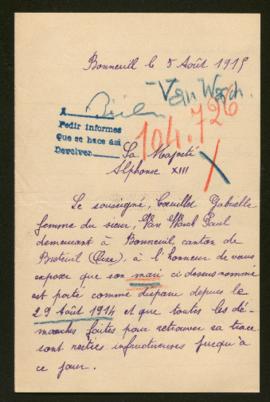 Bonneuil le 5 Août 1915
Van Wach
A
Pedir informes
que se hace así
Devolver
104.726
Sa Majesté
Alphonse XIII
Le soussigné, Gabrielle
femme du sieur, Van Wach Paul
demeurant à Bonneuil, canton de
Breteuil (Oise) à l'honneur de vous
exposer que son mari ci dessus nommé
est porté comme disparu depuis le
29 Août 1914 et que toutes les dé-
marches faites pour retrouver sa trace
sont restées infructueuses jusqu'à
ce jour.